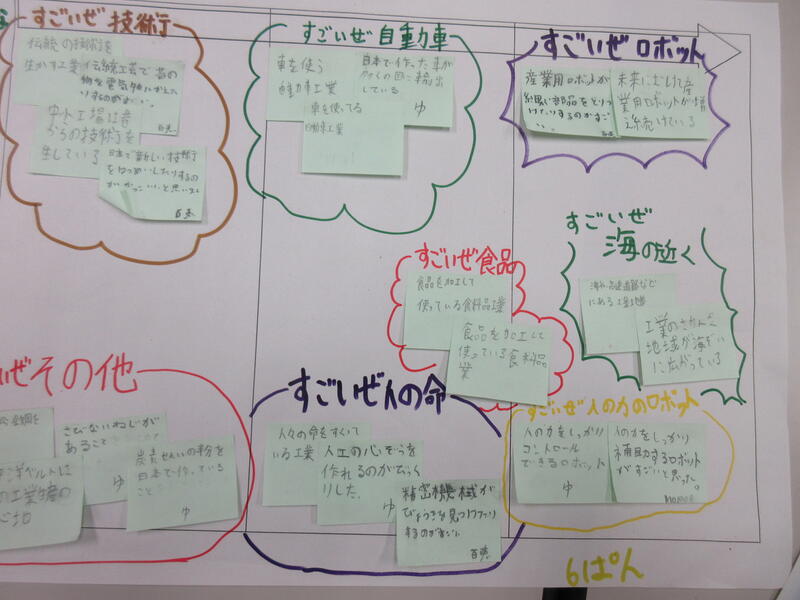 すごいぜ技術
伝統の技術を
生かす工業
伝統工芸で昔の
物を電気
中小工場は昔
からの技術を
生している
日本で新しい技術
百恵
すごいぜ自動車
車を使う
自動車工業
日本で作った車が
多くの国に輸出
している
ゆ
車を使ってる
自動車工業
すごいぜロボット
産業用ロボットが
細い部品をとりつ
けたりするのがすご
い。
未来にむけて産
業用ロボットが増
え続けている
すごいぜ
海の近く
海や高速道路など
にある工業地
工業のさかんな
地域が海ぞい
に広がっている
すごいぜ食品
食品を加工して
使っている食料品工業
食品を加工して
使っている食料品
業
いぜその他
さびないねじが
あること
炭素せんいの粉を
日本で作っている
こと
ゆ
洋ベルトに
の工業生産の
心地
すごいぜ人の命
人々の命をすくって
いる工業
人工の心ぞうを
作れるのがびっく
りした。
ゆ
精密機械が
びょうきを見つけたり
するのが
百恵
すごいぜ人の力のロボット
人の力をしっかり
コントロール
できるロボット
ゆ
人の力をしっかり
補助するロボット
がすごいと思った。
momoe
6ぱん